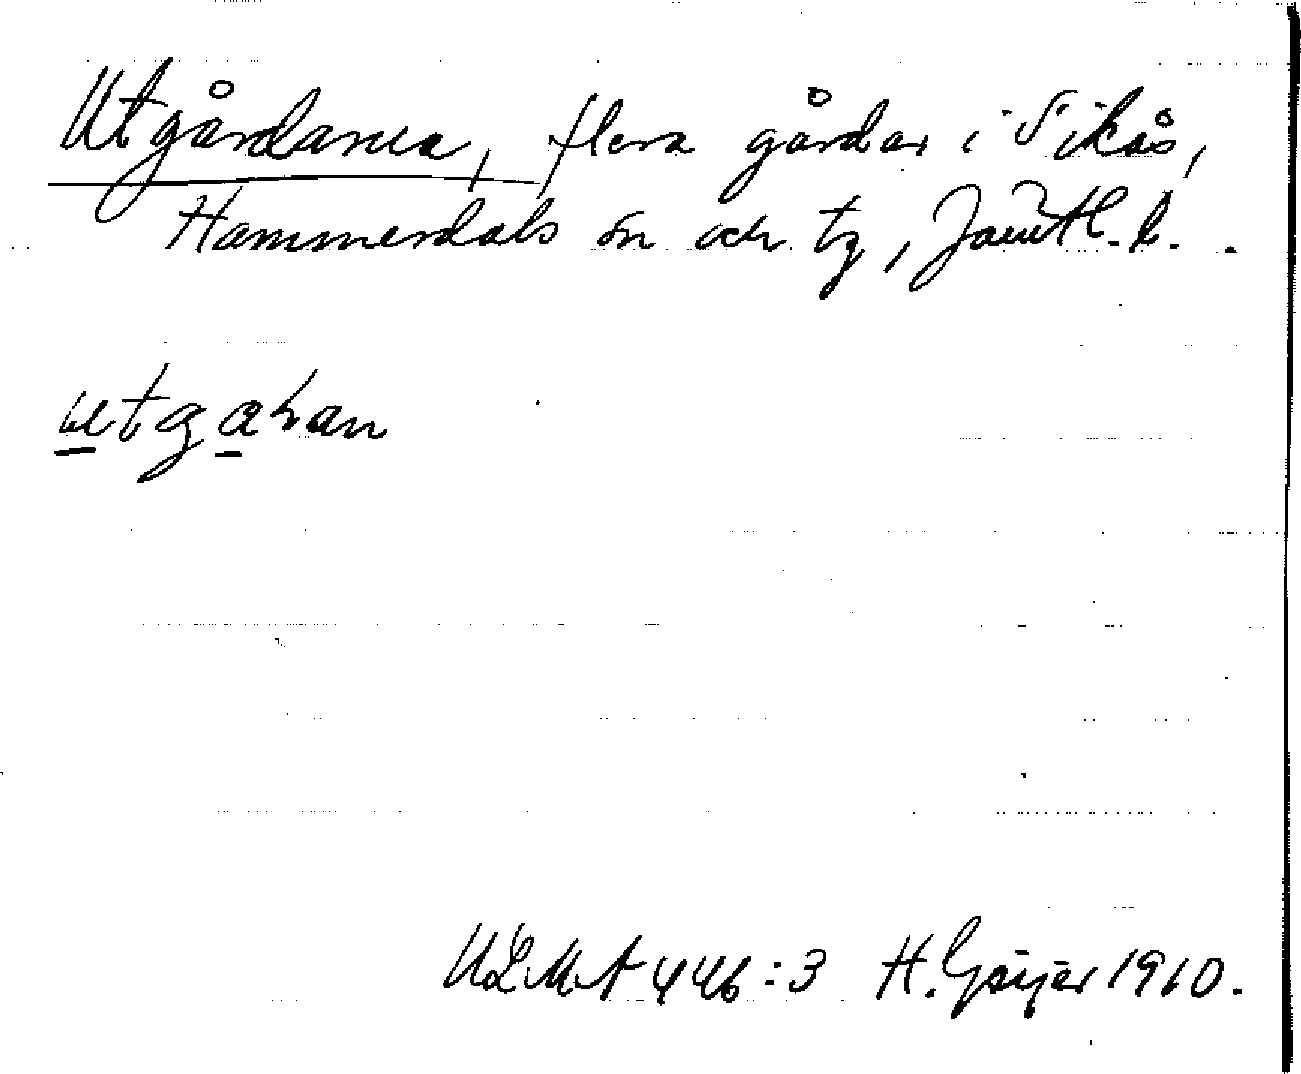 Utgårdarna, flera gårdar i Sikås,
Hammerdals sn och tg, Jämtl. l.
utgaɽan
ULMA 446:3 H. Geijer 1910.